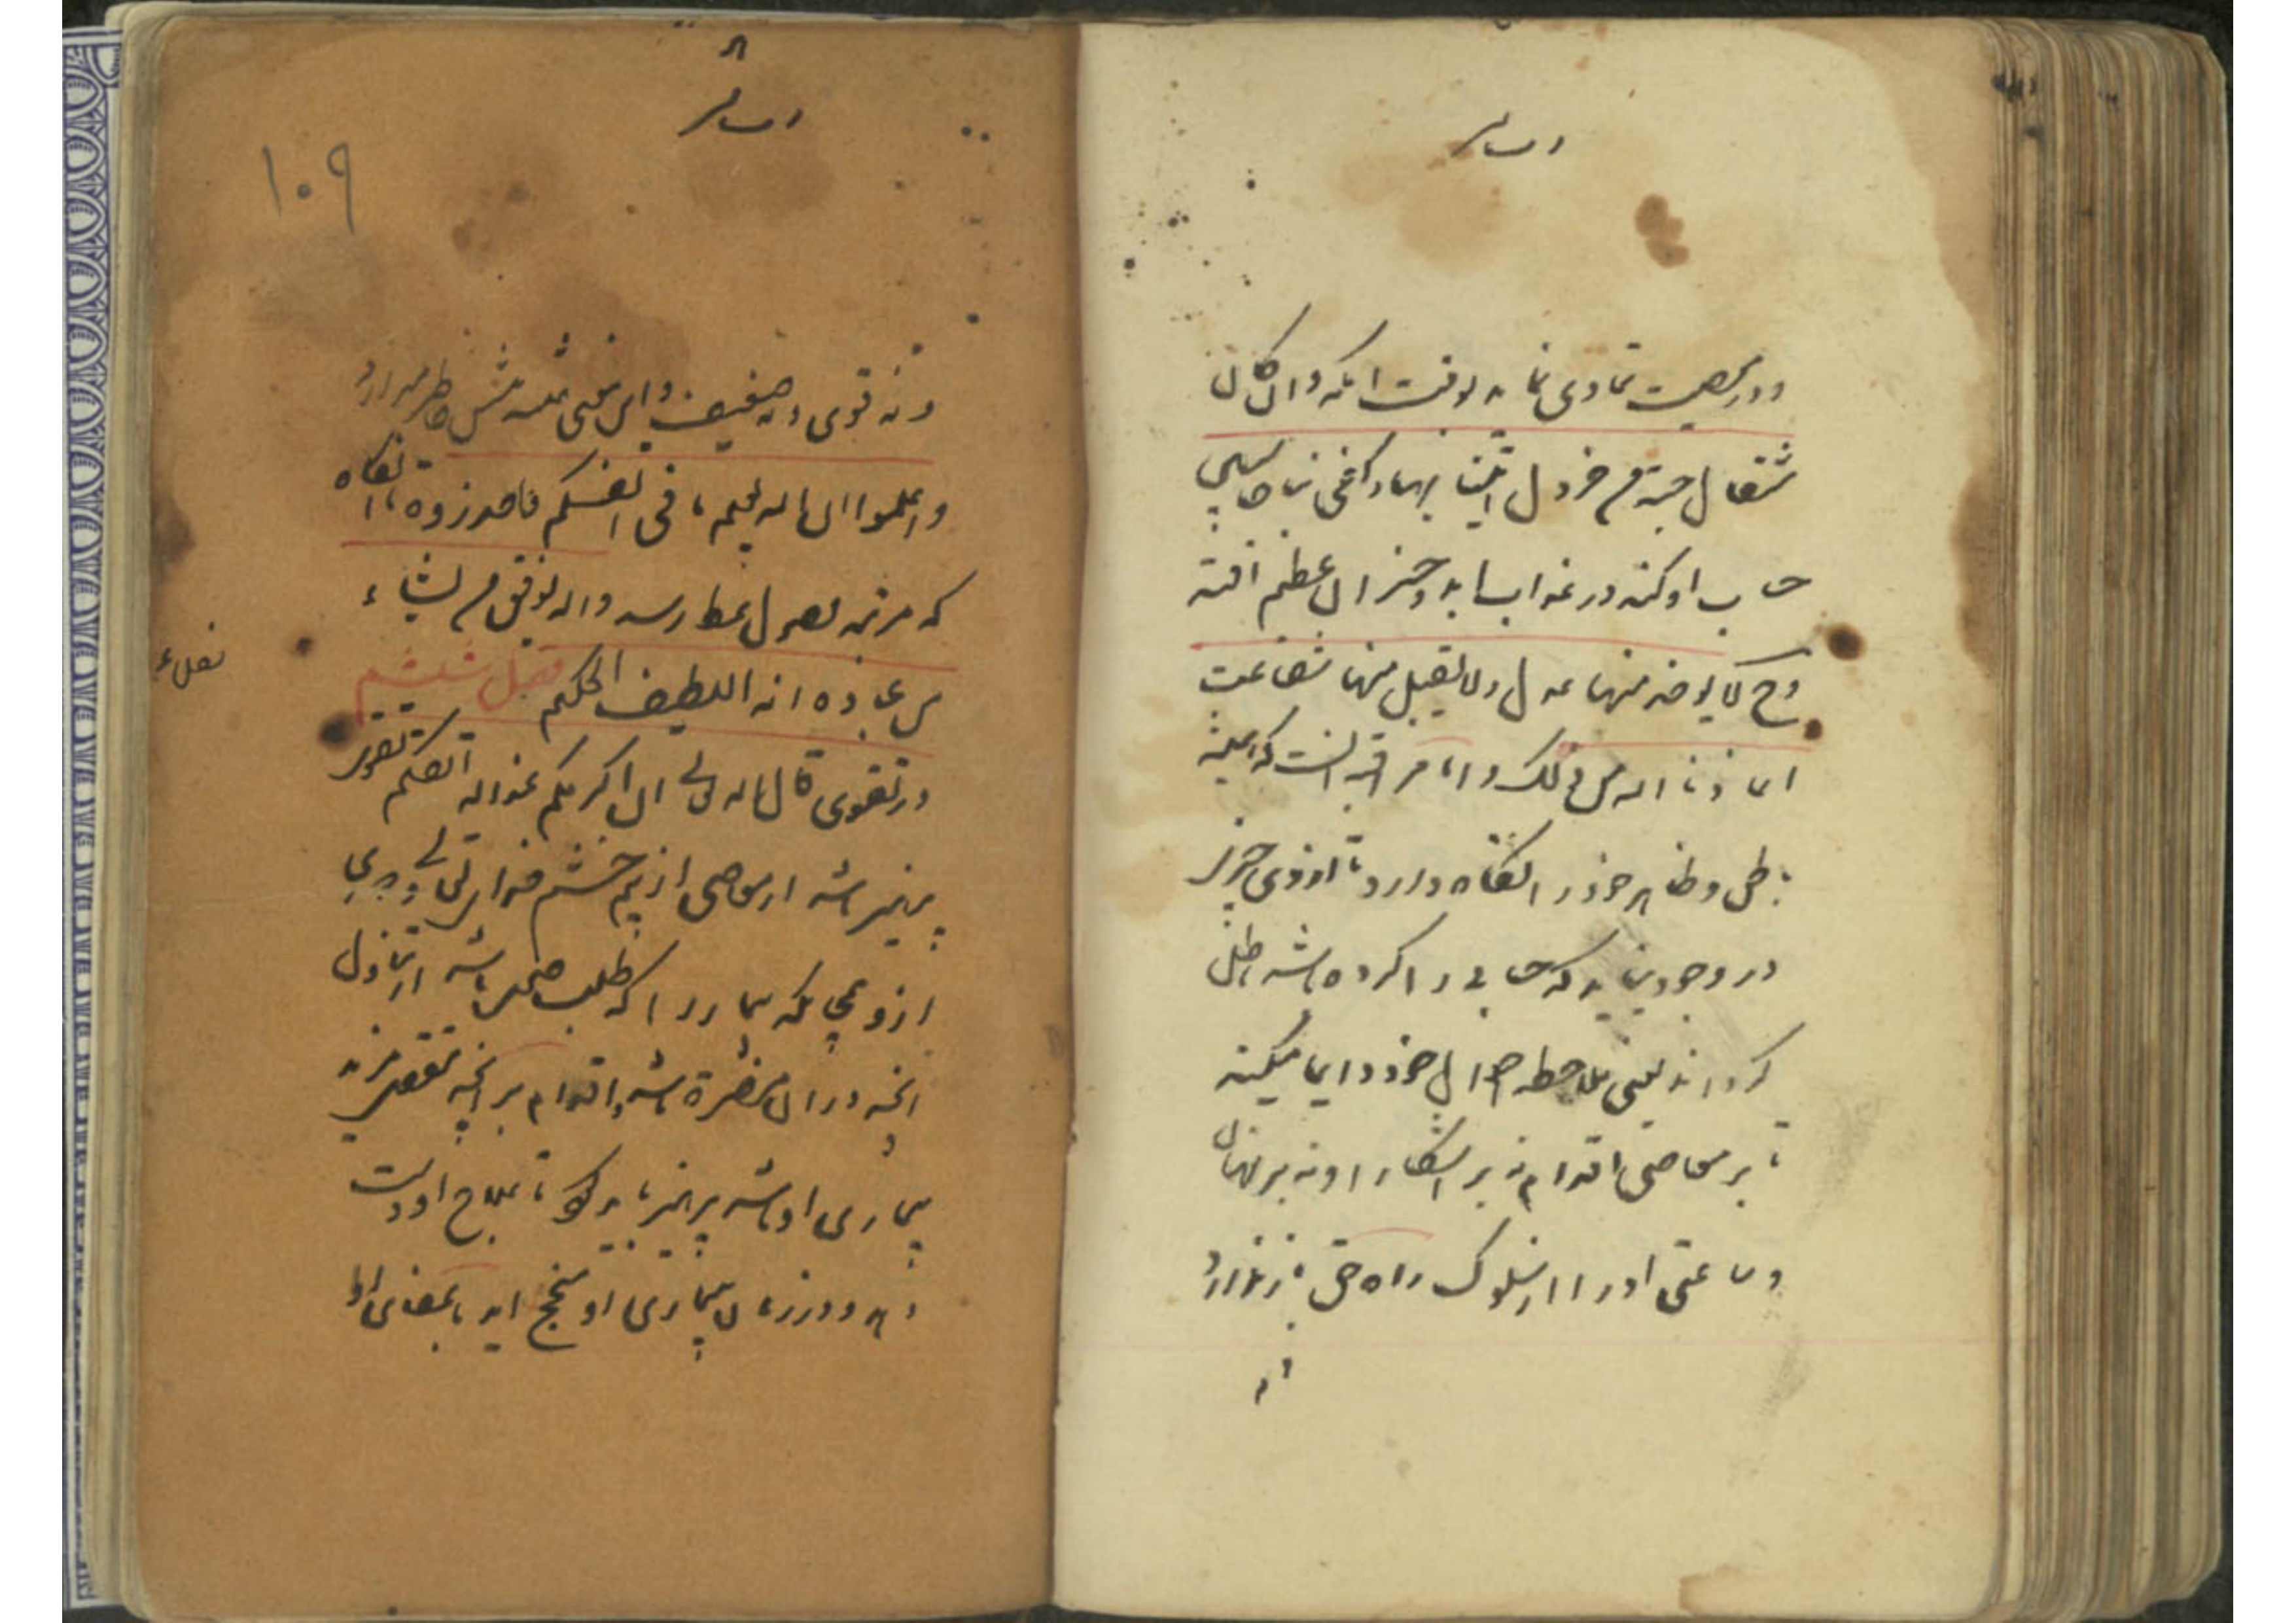 و در معصیت تمادی نماید بوقت انکه و ان کان
مثقال حبة من خردل اتینا بها و کفی بنا حاسبین
حساب او کنند در عذاب ابد و خسران عظیم افتد
وح لا یوخذ منها عدل ولا یقبل منها شفاعت
اعاذنا الله من ذلک و اما مراقبه انست که همیشه
باطن و ظاهر خود را نگاه دارد تا از وی چیزی
در وجود نیاید که حسناتی را کرده باشد باطل
گرداند یعنی ملاحظه احوال خود دایما میکند
تا بر معاصی اقدام نه بر اشکارا و نه بر نهان
و ساعتی او را از سلوک راه حق باز ندارد
۱۰۹
و نه قوی و نه ضعیف و این معنی همیشه پیش خاطر میدارد
واعلموا ان الله یعلم ما فی انفسکم فاحذروه تا انگاه
که مرتبه وصول عطا رسد والله یوفق من یشاء
من عباده انه اللطیف الحکیم فصل ششم
در تقوی قال الله تعالی ان اکرمکم عند الله اتقیکم تقوی
پرهیز باشد از معاصی از بیم خشم خدای تعالی و دوری
ازو همچنانکه بیمار را که طلب صحت باشد از تناول
انچه در ان مضرة باشد و اقدام بر انچه مقتضی مزید
بیماری او باشد پرهیز باید کرد تا علاج او دست
دهد و درزمان بیماری او منجح اید